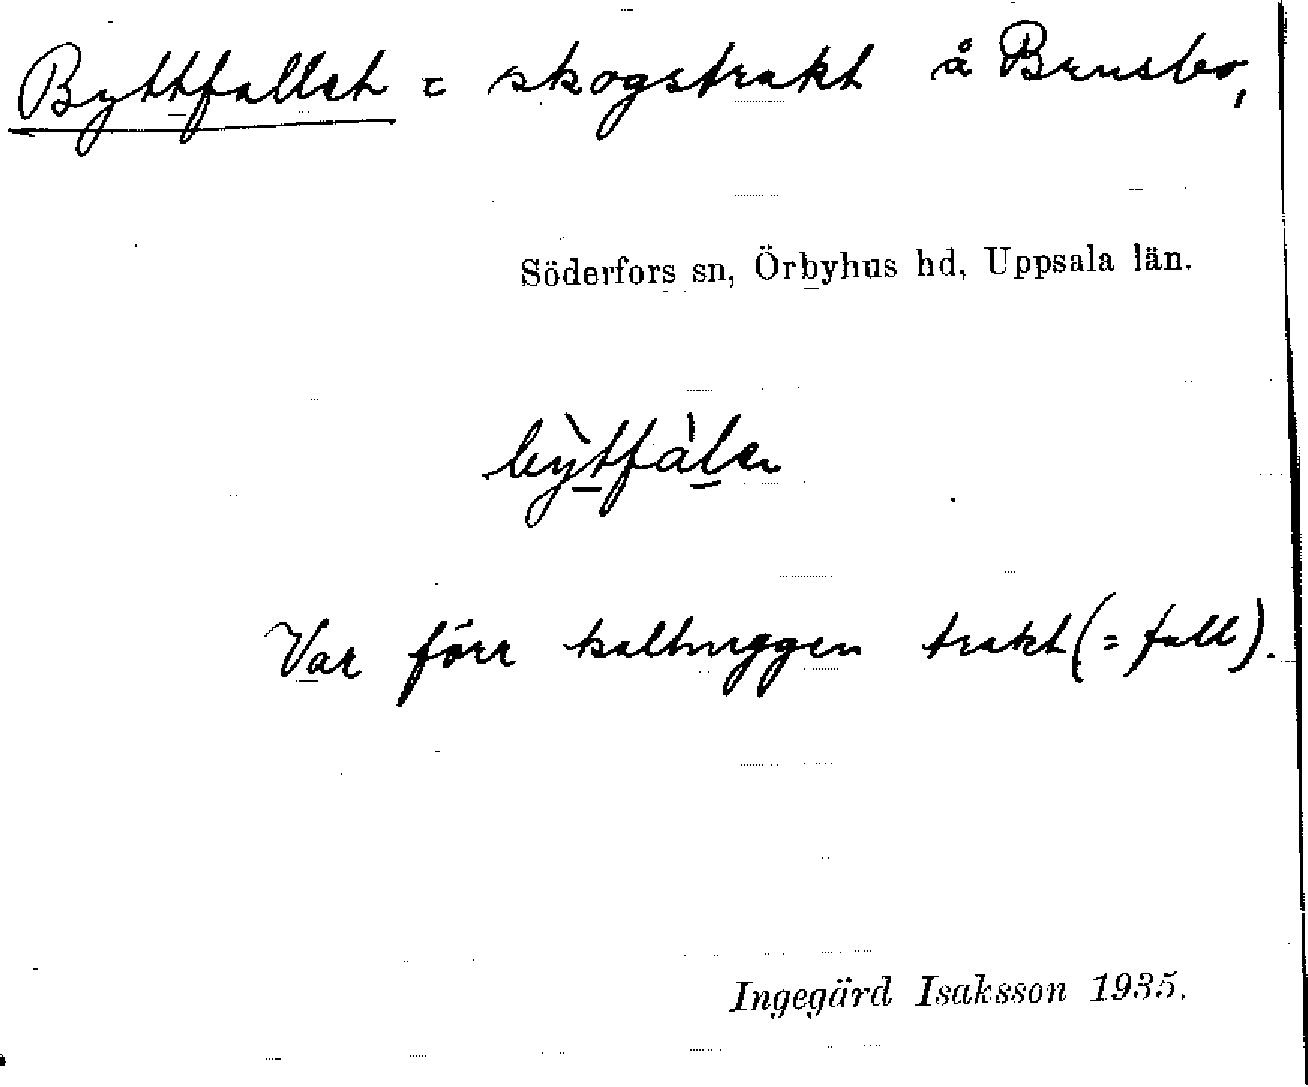 Byttfallet = skogstrakt å Brusbo,
Söderfors sn, Örbyhus hd, Uppsala län.
bỳtfàlen
Var förr kalhuggen trakt (= fall).
Ingegärd Isaksson 1935.